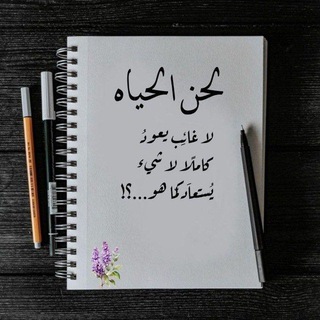 لحن الحياه
لا غائِب يعودُ
كاملًا لا شيء
يُستعاَد كما هو...؟!